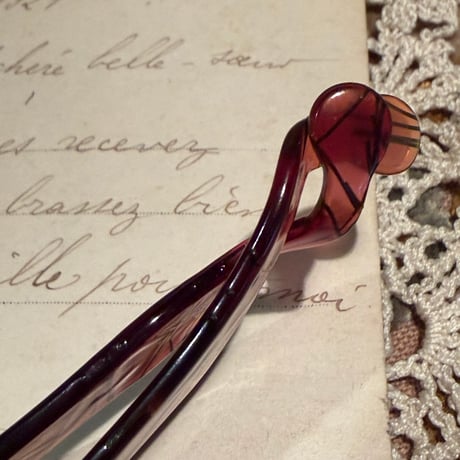 chéré belle-sœur
es recevez
brassez bien
ille pour moi